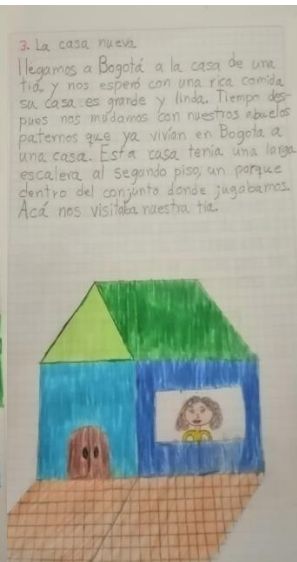 3. La casa nueva
llegamos a Bogotá a la casa de una
tía, y nos esperó con una rica comida
su casa es grande y linda. Tiempo des-
pues nos mudamos con nuestros abuelos
paternos que ya vivían en Bogota a
una casa. Esta casa tenía una larga
escalera al segundo piso, un parque
dentro del conjunto donde jugabamos.
Acá nos visitaba nuestra tía.